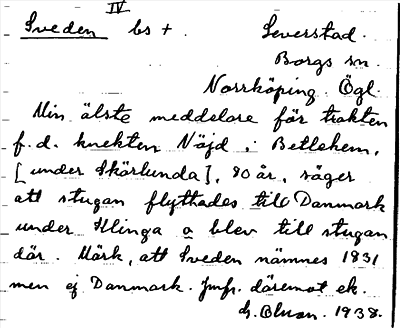 IV
Sveden bs + Leverstad.
Borgs sn.
Norrköping. Ögl.
Min älste meddelare för trakten
f.d. knekten Nöjd i Betlehem,
[under Skärlunda], 80 år, säger
att stugan flyttades till Danmark
under Klinga o blev till stugan
där. Märk, att Sveden nämnes 1831
men ej Danmark. Jmfr. däremot ek.
G. Olson. 1938.